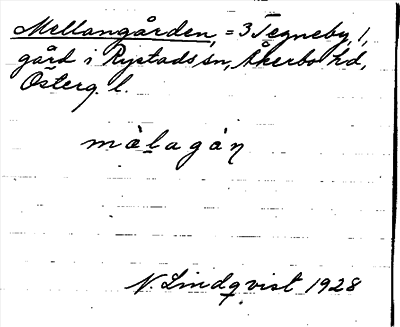 Mellangården, = 3 Tegneby, 1,
gård i Rystads sn, Åkerbo hd,
Österg. l.
mὰlagάƞ
N. Lindqvist 1928